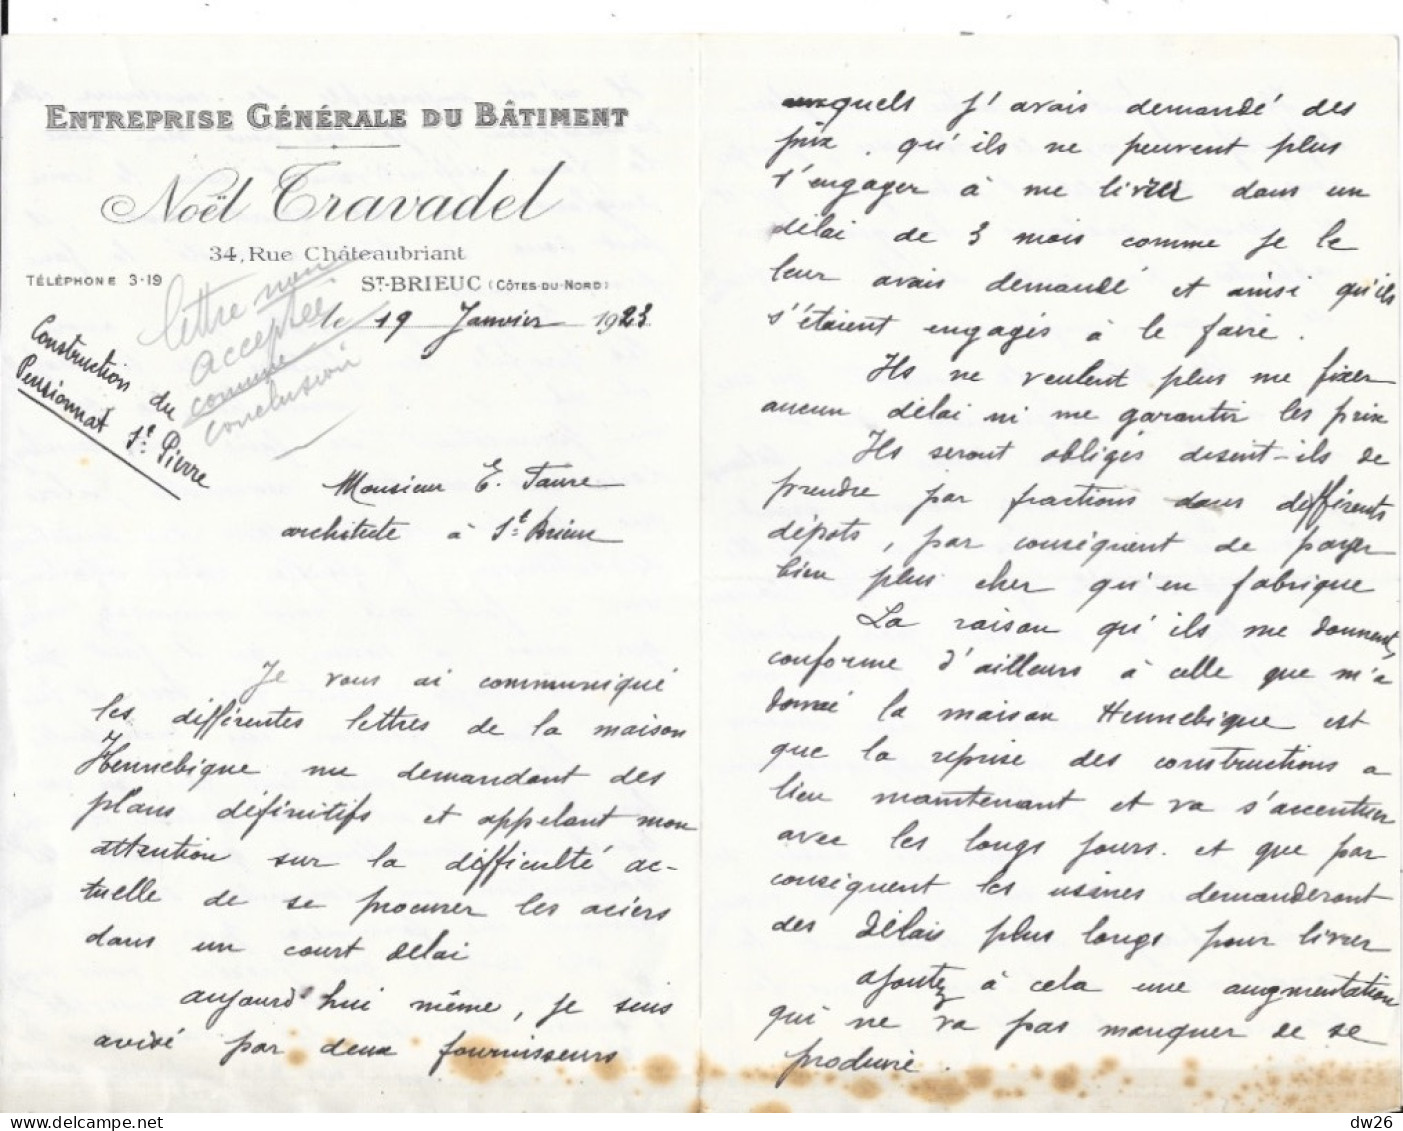 ENTREPRISE GÉNÉRALE DU BÂTIMENT
Noël Travadel
34, Rue Châteaubriant
TÉLÉPHONE 3-19
ST-BRIEUC (CÔTES-DU-NORD)
le 19 Janvier 1923
lettre non
acceptée
comme
conclusion
Construction du
Pensionnat St Pierre
Monsieur E. Faure
architecte à St Brieuc
Je vous ai communiqué
les différentes lettres de la maison
Hennebique me demandant des
plans définitifs et appelant mon
attention sur la difficulté ac-
tuelle de se procurer les aciers
dans un court délai
aujourd'hui même, je suis
avisé par deux fournisseurs
auxquels j'avais demandé des
prix. qu'ils ne peuvent plus
s'engager à me livrer dans un
délai de 3 mois comme je le
leur avais demandé et ainsi qu'ils
s'étaient engagés à le faire.
Ils ne veulent plus me fixer
aucun délai ni me garantir les prix
Ils seront obligés disent-ils de
prendre par fractions dans différents
dépots, par conséquent de payer
bien plus cher qu'en fabrique
La raison qu'ils me donnent,
conforme d'ailleurs à celle que m'a
donné la maison Hennebique est
que la reprise des constructions a
lieu maintenant et va s'accentuer
avec les longs jours. et que par
conséquent les usines demanderont
des délais plus longs pour livrer
ajoutez à cela une augmentation
qui ne va pas manquer de se
produire.
dw26